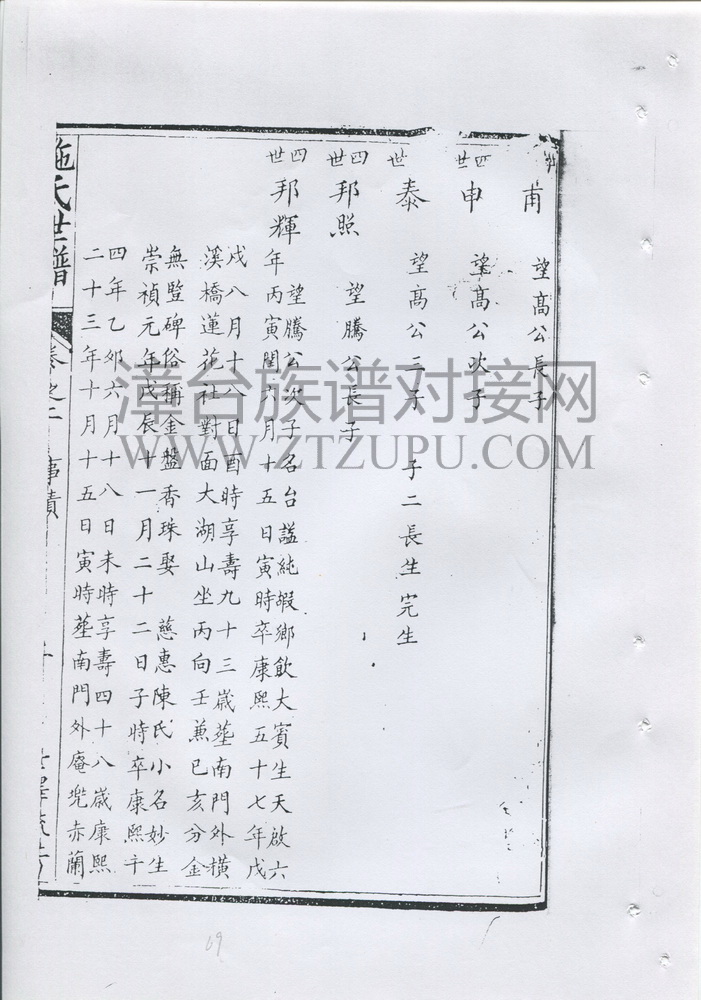 甫 望高公長子
四世 申 望高公次子
世 泰 望高公三子 子二長生完生
四世 邦照 望騰公長子
四世 邦輝 望騰公次子名台諡純嘏鄉飲大賓生天啟六
年丙寅閏六月十五日寅時卒康熙五十七年戊
戌八月十八日酉時享壽九十三歲塟南門外橫
溪橋蓮花社對面大湖山坐丙向壬兼巳亥分金
無監碑俗稱金盤香珠娶 慈惠陳氏小名妙生
崇禎元年戊辰十一月二十二日子時卒康熙十
四年乙卯六月十八日未時享壽四十八歲康熙
二十三年十月十五日寅時塟南門外庵兠赤蘭
施氏世譜 卷之二 事蹟
漳台族谱对接网
WWW.ZTZUPU.COM
69